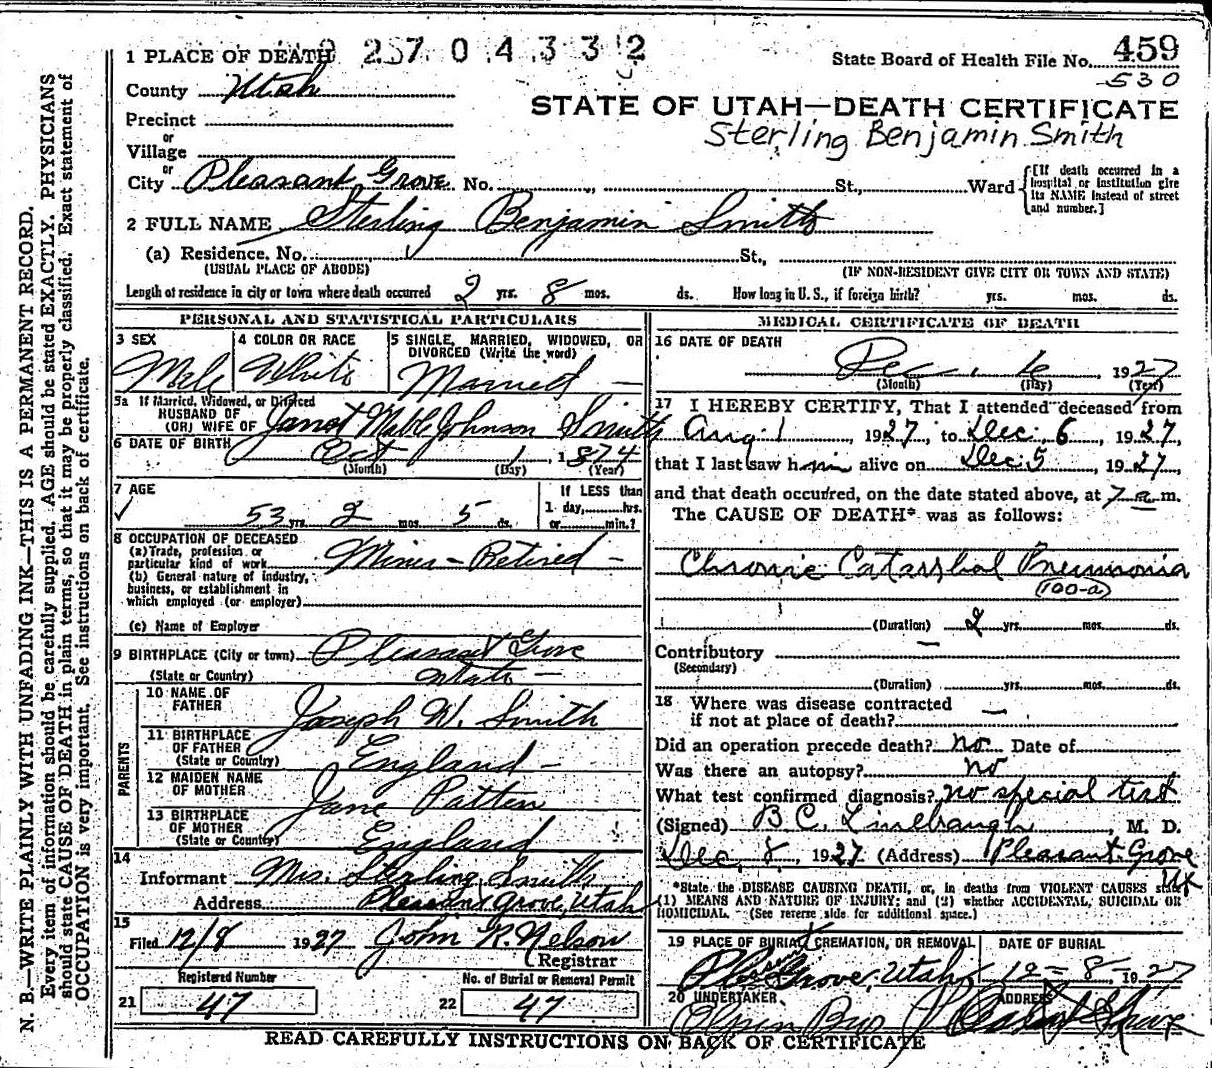 9 2 5 7 0 4 3 3 2
1 PLACE OF DEATH
State Board of Health File No. 459
530
County Utah
STATE OF UTAH—DEATH CERTIFICATE
Precinct
Sterling Benjamin Smith
or
Village
or
City Pleasant Grove No. St., Ward
[If death occurred in a
hospital or institution give
its NAME instead of street
and number.]
2 FULL NAME Sterling Benjamin Smith
(a) Residence. No. St.,
(USUAL PLACE OF ABODE) (IF NON-RESIDENT GIVE CITY OR TOWN AND STATE)
Length of residence in city or town where death occurred 2 yrs. 8 mos. ds. How long in U. S., if foreign birth? yrs. mos. ds.
PERSONAL AND STATISTICAL PARTICULARS
3 SEX
Male
4 COLOR OR RACE
White
5 SINGLE, MARRIED, WIDOWED, OR
DIVORCED (Write the word)
Married —
5a If Married, Widowed, or Divorced
HUSBAND OF
(OR) WIFE OF Janet Mable Johnson Smith
6 DATE OF BIRTH Oct 1, 1874
(Month) (Day) (Year)
7 AGE
✓
53 yrs. 2 mos. 5 ds.
If LESS than
1 day, hrs.
or min.?
8 OCCUPATION OF DECEASED
(a) Trade, profession or
particular kind of work Miner – Retired –
(b) General nature of industry,
business, or establishment in
which employed (or employer)
(c) Name of Employer
9 BIRTHPLACE (City or town) Pleasant Grove
(State or Country) Utah —
PARENTS
10 NAME OF
FATHER Joseph W. Smith
11 BIRTHPLACE
OF FATHER
(State or Country) England —
12 MAIDEN NAME
OF MOTHER Jane Patten
13 BIRTHPLACE
OF MOTHER
(State or Country) England
14
Informant Mrs. Sterling Smith
Address Pleasant Grove, Utah
15
Filed 12/8 1927 John R. Nelson
Registrar
Registered Number
21 47
No. of Burial or Removal Permit
22 47
MEDICAL CERTIFICATE OF DEATH
16 DATE OF DEATH
Dec. 6 1927
(Month) (Day) (Year)
17 I HEREBY CERTIFY, That I attended deceased from
Aug 1, 1927, to Dec. 6, 1927,
that I last saw him alive on Dec 5, 1927,
and that death occurred, on the date stated above, at 7 a m.
The CAUSE OF DEATH* was as follows:
Chronic Catarrhal Pneumonia
(100-a)
(Duration) 2 yrs. mos. ds.
Contributory —
(Secondary)
(Duration) yrs. mos. ds.
18 Where was disease contracted
if not at place of death? —
Did an operation precede death? no Date of
Was there an autopsy? no
What test confirmed diagnosis? no special test
(Signed) B C. Linebaugh, M. D.
Dec. 8, 1927 (Address) Pleasant Grove
Ut
*State the DISEASE CAUSING DEATH, or, in deaths from VIOLENT CAUSES state
(1) MEANS AND NATURE OF INJURY; and (2) whether ACCIDENTAL, SUICIDAL OR
HOMICIDAL. (See reverse side for additional space.)
19 PLACE OF BURIAL, CREMATION, OR REMOVAL
Grove, Utah
DATE OF BURIAL
12 – 8 1927
20 UNDERTAKER
Olpin Bro
ADDRESS
Pleasant Grove
READ CAREFULLY INSTRUCTIONS ON BACK OF CERTIFICATE
N. B.—WRITE PLAINLY WITH UNFADING INK—THIS IS A PERMANENT RECORD.
Every item of information should be carefully supplied. AGE should be stated EXACTLY. PHYSICIANS
should state CAUSE OF DEATH in plain terms, so that it may be properly classified. Exact statement of
OCCUPATION is very important. See instructions on back of certificate.